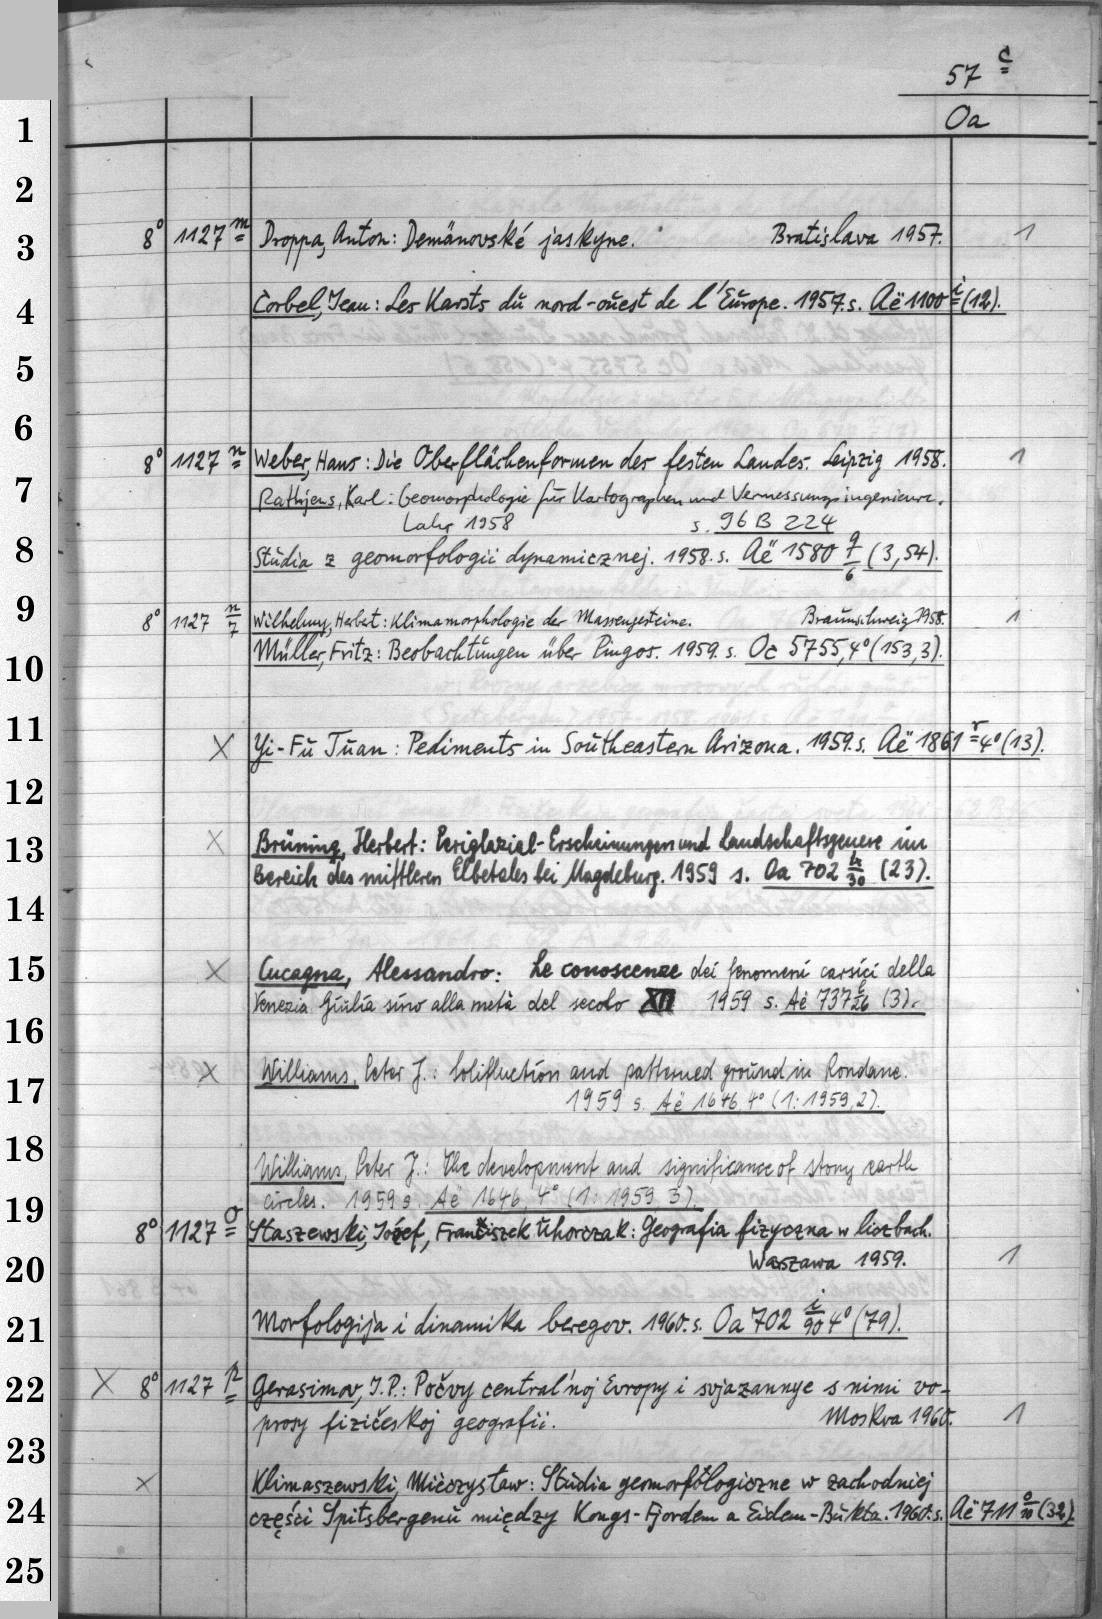 57 c
Oa
1
2
3 8° 1127 m Droppa, Anton: Demänovské jaskyne. Bratislava 1957. 1
4 Corbel, Jean: Les Karsts du nord-ouest de l'Europe. 1957. s. Aë 1100 i (12).
5
6
8° 1127 n Weber, Hans: Die Oberflächenformen des festen Landes. Leipzig 1958. 1
7 Rathjens, Karl: Geomorphologie für Kartographen und Vermessungsingenieure.
Lahr 1958 s. 96 B 224
8 Studia z geomorfologii dynamicznej. 1958. s. Aë 1580 q/6 (3,54).
9 8° 1127 n/7 Wilhelmy, Herbert: Klimamorphologie der Massengesteine. Braunschweig 1958. 1
10 Müller, Fritz: Beobachtungen über Pingos. 1959. s. Oc 5755, 4° (153,3).
11 X Yi-Fu Tuan: Pediments in Southeastern Arizona. 1959. s. Aë 1861 r 4° (13).
12
13 X Brüning, Herbert: Periglazial-Erscheinungen und Landschaftsgenese im
Bereich des mittleren Elbetales bei Magdeburg. 1959 s. Oa 702 h/30 (23).
14
15 X Cucagna, Alessandro: Le conoscenze dei fenomeni carsici della
Venezia Giulia sino alla metà del secolo XII 1959 s. Aë 737 /26 (3).
16
17 X Williams, Peter J.: Solifluction and patterned ground in Rondane.
1959 s. Aë 1646, 4° (1: 1959, 2).
18 Williams, Peter J.: The development and significance of stony earth
circles. 1959 s. Aë 1646, 4° (1: 1959, 3).
19 8° 1127 o Staszewski, Józef, Franciszek Uhorczak: Geografia fizyczna w liczbach.
20 Warszawa 1959. 1
21 Morfologija i dinamika beregov. 1960. s. Oa 702 i/90 4° (79).
22 X 8° 1127 p Gerasimov, I.P.: Počvy central'noj Evropy i svjazannye s nimi vo-
prosy fizičeskoj geografii. Moskva 1960. 1
23
X Klimaszewski, Mieczysław: Studia geomorfologiczne w zachodniej
24 części Spitsbergenu między Kongs-Fjordem a Eidem-Bukta. 1960. s. Aë 711 o/10 (32).
25